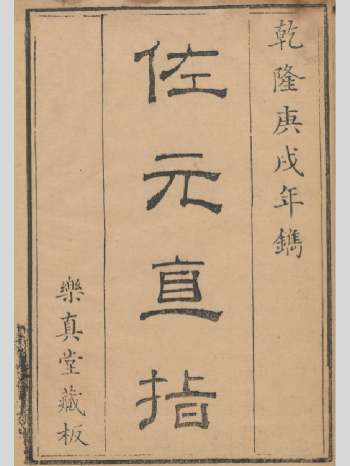 乾隆庚戌年鐫
佐元直指
樂真堂藏板